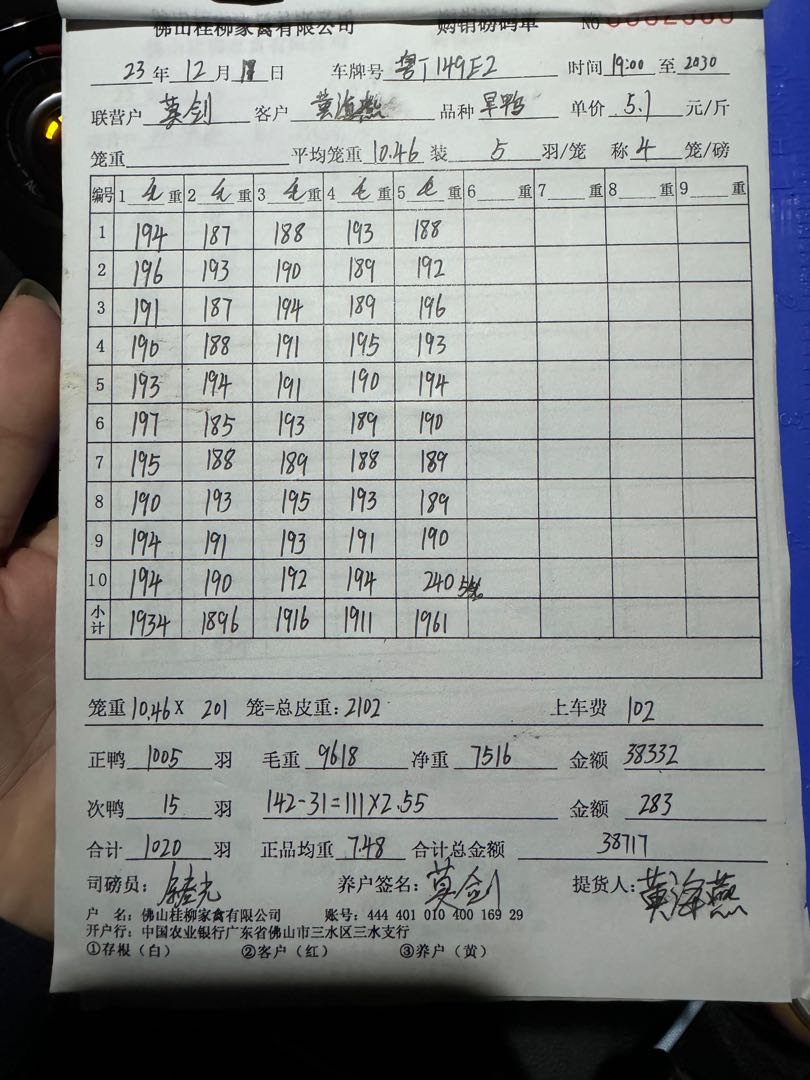 佛山桂柳家禽有限公司 购销磅码单 No
23年12月11日 车牌号 粤J149E2 时间 19:00 至 2030
联营户 莫剑 客户 黄海燕 品种 旱鸭 单价 5.1 元/斤
笼重 平均笼重 10.46 装 5 羽/笼 称 4 笼/磅
编号 1 毛 重 2 毛 重 3 毛 重 4 毛 重 5 毛 重 6 重 7 重 8 重 9 重
1 194 187 188 193 188
2 196 193 190 189 192
3 191 187 194 189 196
4 190 188 191 195 193
5 193 194 191 190 194
6 197 185 193 189 190
7 195 188 189 188 189
8 190 193 195 193 189
9 194 191 193 191 190
10 194 190 192 194 240 5笼
小计 1934 1896 1916 1911 1961
笼重 10.46 X 201 笼=总皮重: 2102 上车费 102
正鸭 1005 羽 毛重 9618 净重 7516 金额 38332
次鸭 15 羽 142-31=111X2.55 金额 283
合计 1020 羽 正品均重 7.48 合计总金额 38717
司磅员: 养户签名: 莫剑 提货人: 黄海燕
户 名: 佛山桂柳家禽有限公司 账号: 444 401 010 400 169 29
开户行: 中国农业银行广东省佛山市三水区三水支行
①存根(白) ②客户(红) ③养户(黄)